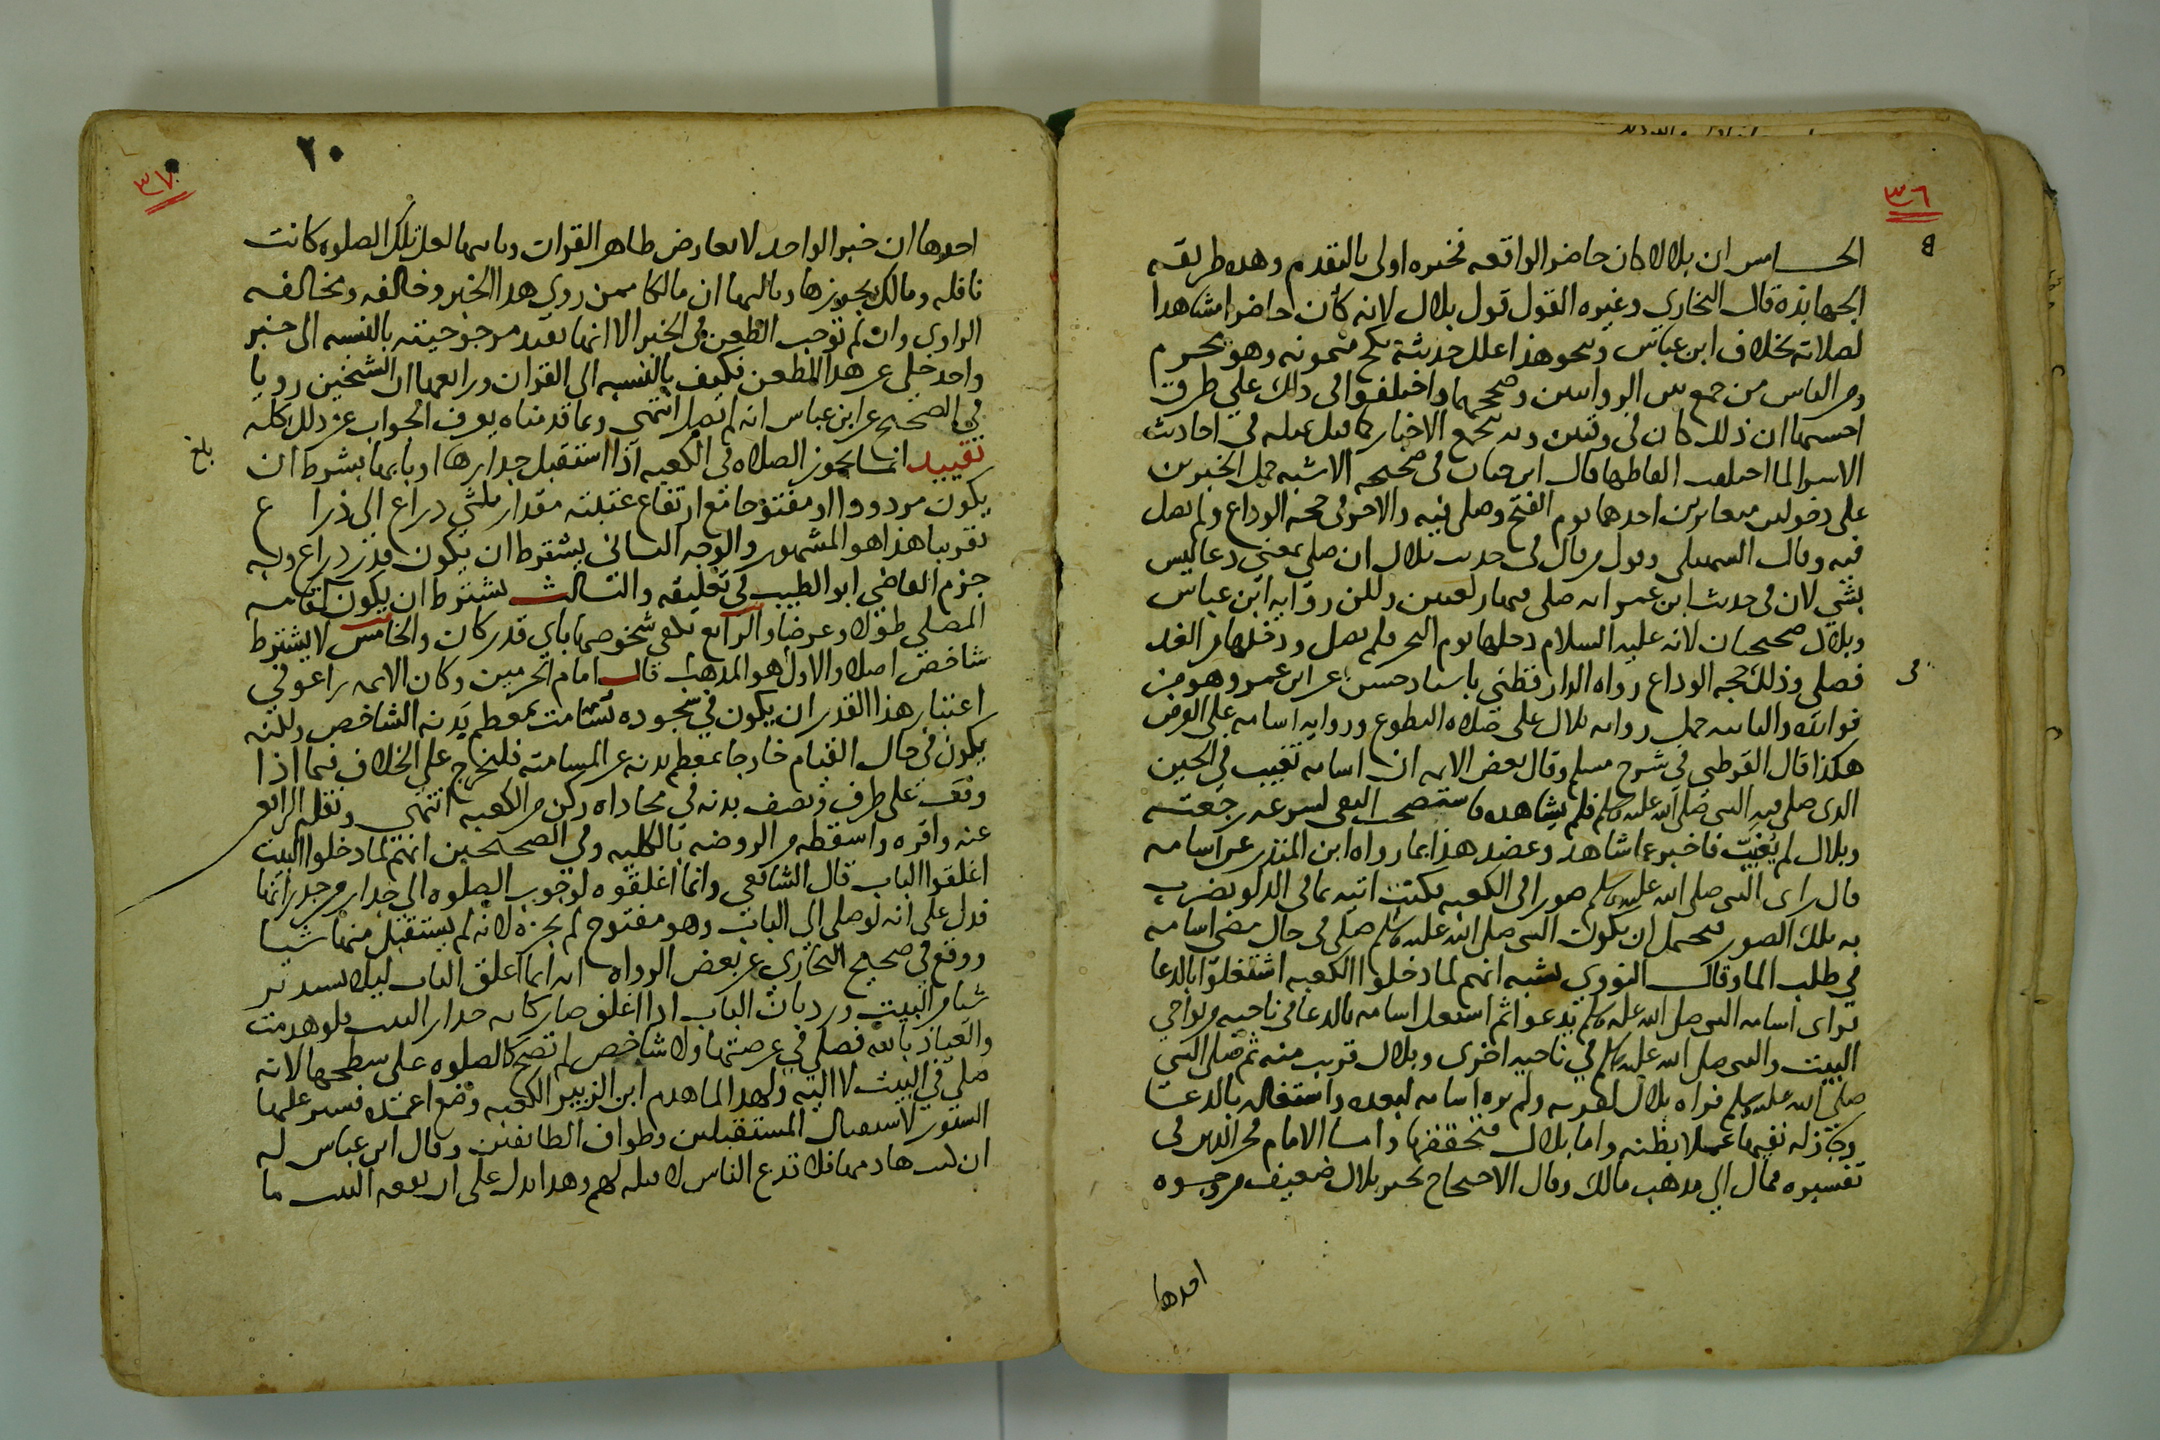 ٣٦
الخامس ان بلالا كان حاضر الواقعه فخبره اولى بالتقدم وهده طريقه
الجهابذة قال البخاري وغيره القول قول بلال لانه كان حاضرا مشاهدا
لصلاته بخلاف ابن عباس ونحو هذا علل حديثه نكح ميمونه وهو محرم
ومن الناس من جمع بين الروايتين وصححهما واختلفوا في ذلك على طرق
احسنها ان ذلك كان في وقتين وبه تجمع الاخبار كما قيل بمثله في احاديث
الاسرا لما اختلفت الفاظها قال ابن حبان في صحيحه الاشبه حمل الخبرين
على دخولين متغايرين احدهما يوم الفتح وصلى فيه والاخر في حجه الوداع ولم يصل
فيه وقال السهيلي وقول من قال في حديث بلال ان صلى بمعنى دعا ليس
بشي لان في حديث ابن عمر انه صلى فيها ركعتين ولكن روايه ابن عباس
وبلال صحيحتان لانه عليه السلام دخلها يوم النحر فلم يصل ودخلها من الغد
فصلى وذلك في حجه الوداع رواه الدارقطني باسناد حسن عن ابن عمر وهو من
فوائده والثانيه حمل روايه بلال على صلاه التطوع وروايه اسامه على الفرض
هكذا قال القرطبي في شرح مسلم وقال بعض الايمه ان اسامه تغيب في الحين
الذي صلى فيه النبي صلى الله عليه وسلم فلم يشاهده فاستصحب النفي لسرعه رجعته
وبلال لم يغب فاخبر عما شاهد وعضد هذا بما رواه ابن المنذر عن اسامه
قال راى النبي صلى الله عليه وسلم صورا في الكعبه فكنت اتيه بما في الدلو يضرب
به تلك الصور فيحتمل ان يكون النبي صلى الله عليه وسلم صلى في حال مضي اسامه
في طلب الما وقال النووي يشبه انهم لما دخلوا الكعبه اشتغلوا بالدعا
فراى اسامه النبي صلى الله عليه وسلم يدعو ثم اشتغل اسامه بالدعا في ناحيه من نواحي
البيت والنبي صلى الله عليه وسلم في ناحيه اخرى وبلال قريب منه ثم صلى النبي
صلى الله عليه وسلم فراه بلال لقربه ولم يره اسامه لبعده واشتغاله بالدعا
وجاز له نفيها عملا بظنه واما بلال فتحققها واما الامام فخر الدين في
تفسيره فمال الى مذهب مالك وقال الاحتجاج بخبر بلال ضعيف من وجوه
احدها
٢٠
٣٧
احدها ان خبر الواحد لا يعارض ظاهر القران وثانيها لعل تلك الصلوه كانت
نافله ومالك يجوزها وثالثها ان مالكا ممن روى هدا الخبر وخالفه ومخالفه
الراوي وان لم توجب الطعن في الخبر الا انها تفيد مرجوحيته بالنسبه الى خبر
واحد خلى عن هدا المطعن فكيف بالنسبه الى القران ورابعها ان الشيخين رويا
في الصحيح عن ابن عباس انه لم يصل انتهى وبما قدمناه يعرف الجواب عن ذلك كله
تقييد انما يجوز الصلاه في الكعبه اذا استقبل جدارها او بابها بشرط ان
بلغ
يكون مردودا او مفتوحا مع ارتفاع عتبته مقدار ثلثي دراع الى ذراع
تقريبا هذا هو المشهور والوجه الثاني يشترط ان يكون قدر دراع وبه
جزم القاضي ابو الطيب في تعليقه والثالث يشترط ان يكون كقامه
المصلي طولا وعرضا والرابع يكفي شخوصها باي قدر كان والخامس لا يشترط
شاخص اصلا والاول هو المدهب قال امام الحرمين وكان الايمه راعو في
اعتبار هذا القدر ان يكون في سجوده يسامت بمعظم بدنه الشاخص ولكنه
يكون في حال القيام خارجا بمعظم بدنه عن المسامته فليخرج على الخلاف فيما اذا
وقف على طرف ونصف بدنه في محاداه ركن من الكعبه انتهى ونقله الرافعي
عنه واقره واسقطه من الروضه بالكليه وفي الصحيحين انهم لما دخلوا البيت
اغلقوا الباب قال الشافعي وانما اغلقوه لوجوب الصلوه الى جدار من جدرانها
فدل على انه لو صلى الى الباب وهو مفتوح لم يجزه لانه لم يستقبل منها شيا
ووقع في صحيح البخاري عن بعض الرواه انه انما اغلق الباب ليلا يستدبر
شيا من البيت ورد بان الباب ادا اغلق صار كانه جدار البيت فلو هدمت
والعياذ بالله فصلى في عرصتها ولا شاخص لم تصح كالصلوه على سطحها لانه
صلى في البيت لا اليه ولهدا لما هدم ابن الزبير الكعبه وضع اعمده فستر عليها
الستور لاستقبال المستقبلين وطواف الطايفين وقال ابن عباس له
ان كنت هادمها فلا تدع الناس لا قبله لهم وهدا يدل على ان بقعه البيت ما